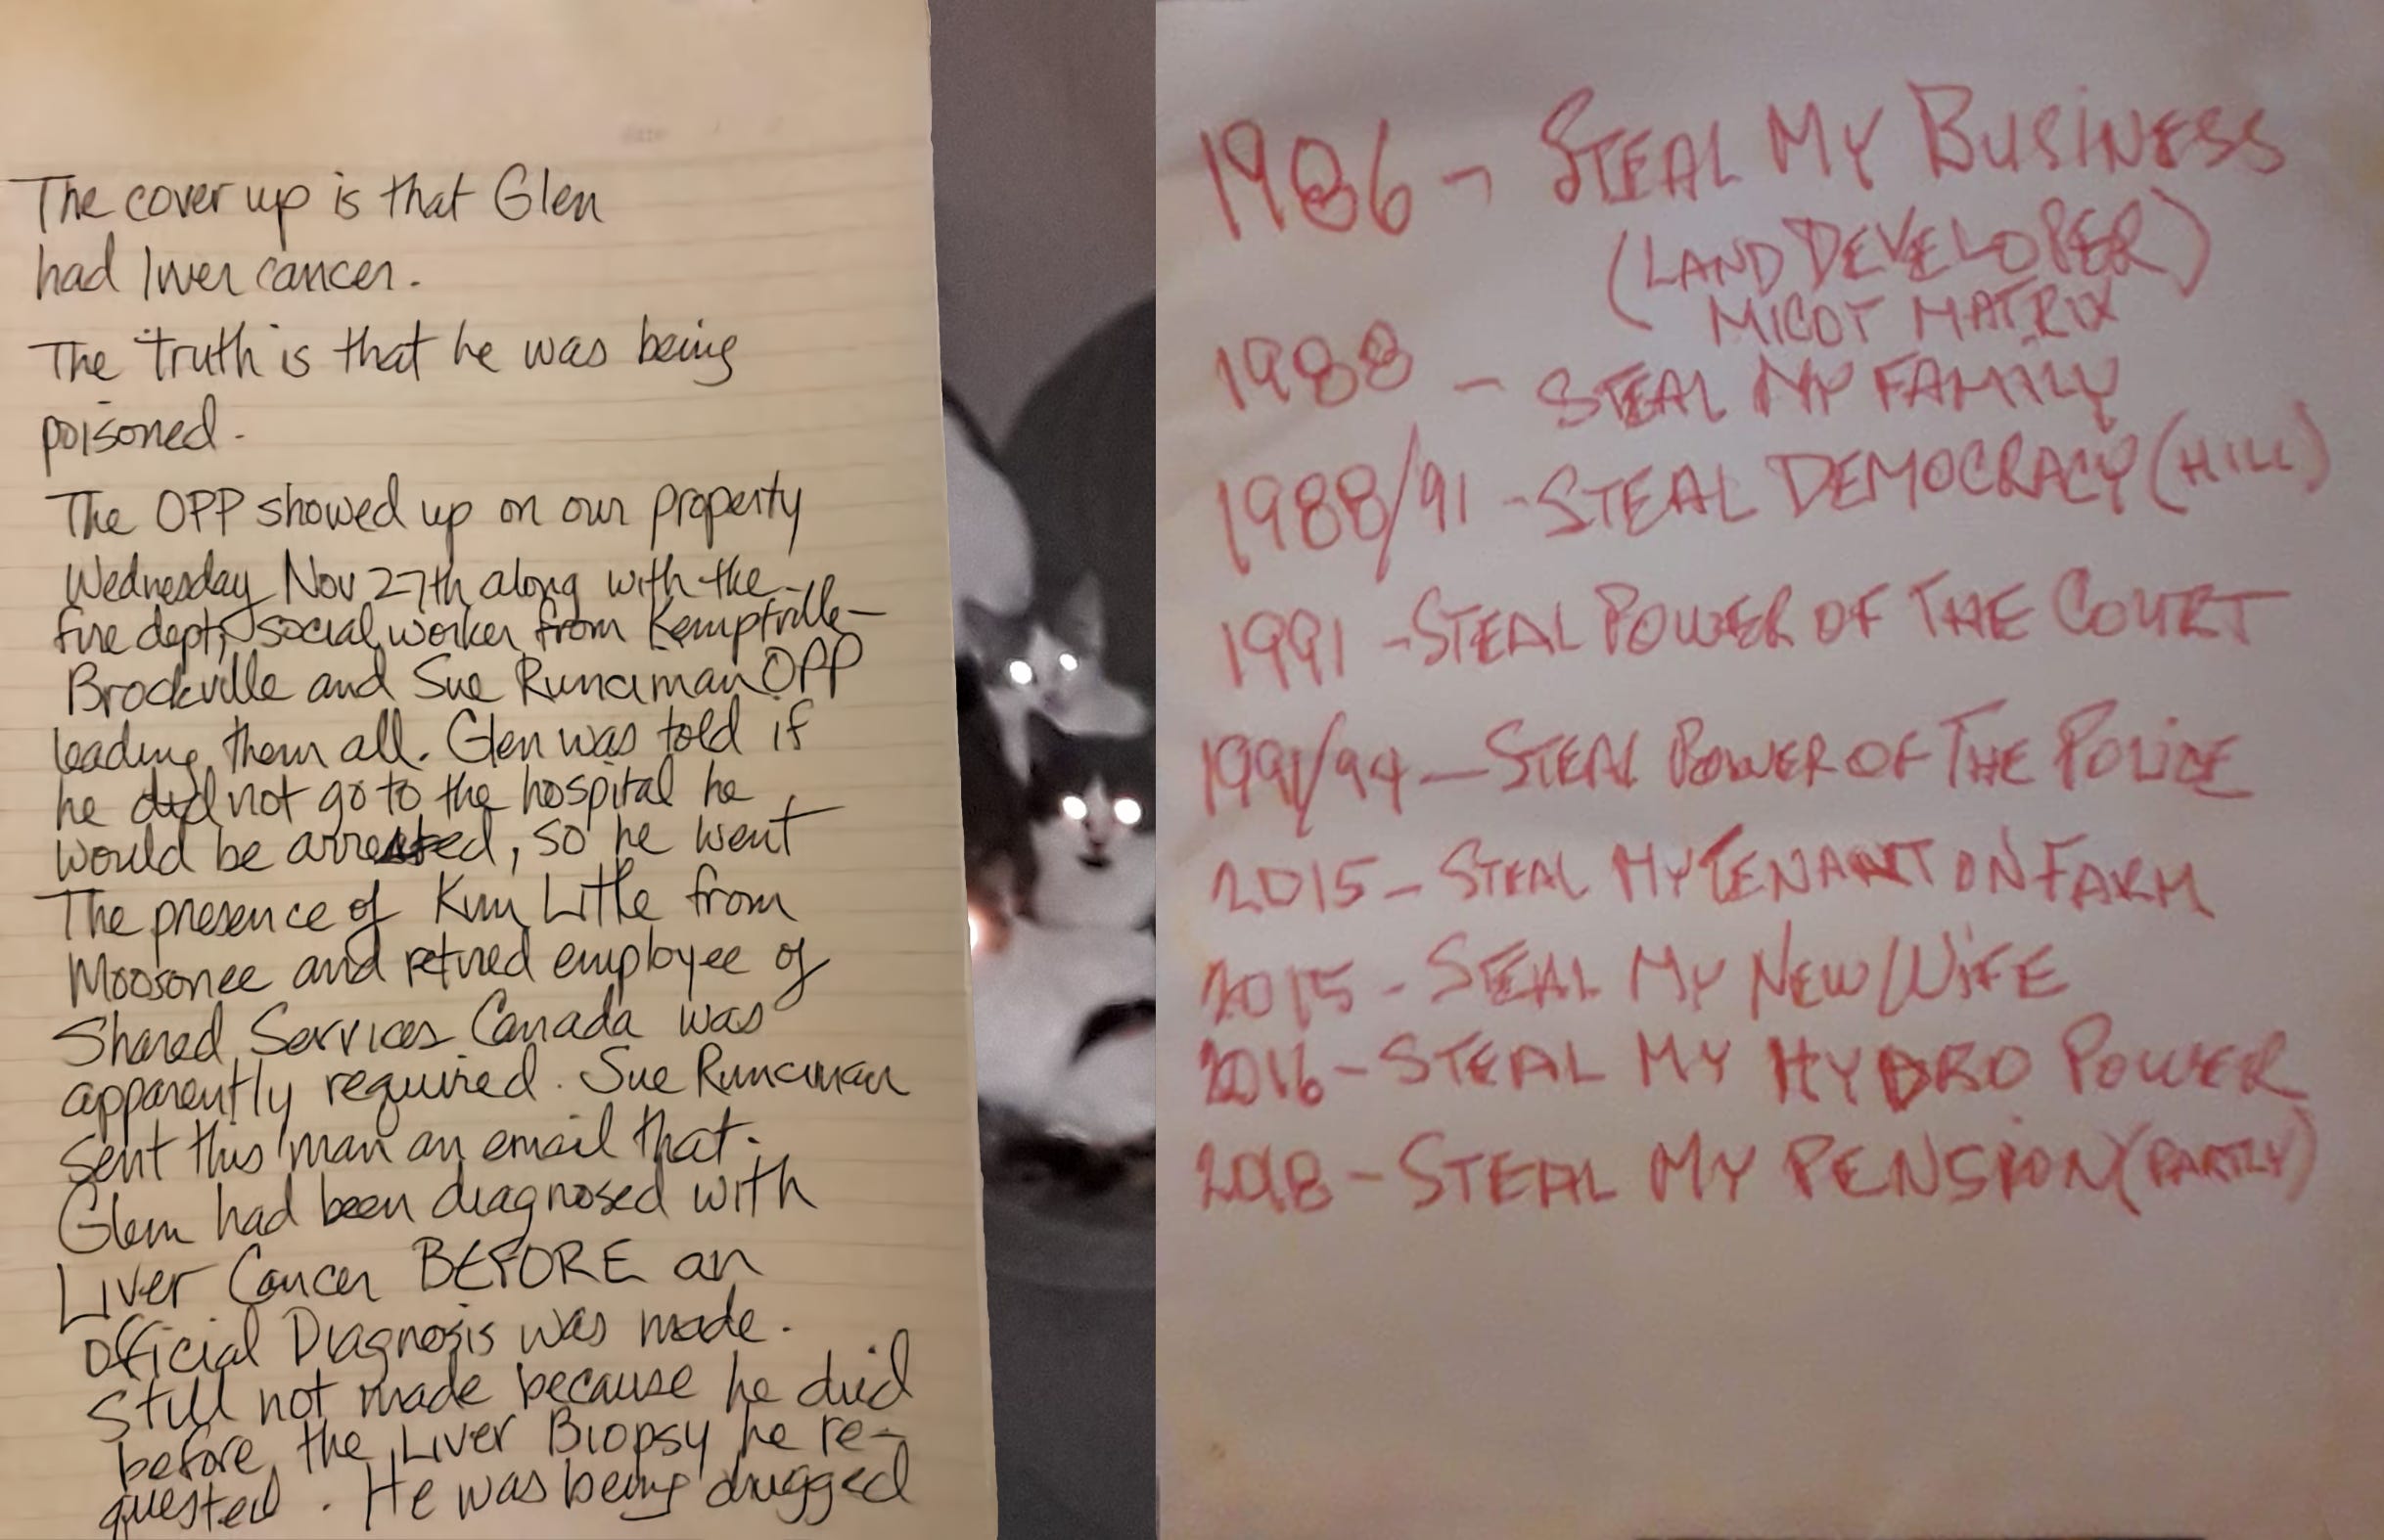 The cover up is that Glen
had liver cancer.
The truth is that he was being
poisoned.
The OPP showed up on our property
Wednesday Nov 27th along with the
fire dept, social worker from Kemptville-
Brockville and Sue Runciman OPP
leading them all. Glen was told if
he did not go to the hospital he
would be arrested, so he went
The presence of Kim Little from
Moosonee and retired employee of
Shared Services Canada was
apparently required. Sue Runciman
sent this man an email that
Glen had been diagnosed with
Liver Cancer BEFORE an
official Diagnosis was made.
Still not made because he died
before the Liver Biopsy he re-
quested. He was being drugged
1986 - STEAL MY BUSINESS
(LAND DEVELOPER)
MICOT MATRIX
1988 - STEAL MY FAMILY
1988/91 - STEAL DEMOCRACY (HILL)
1991 - STEAL POWER OF THE COURT
1991/94 - STEAL POWER OF THE POLICE
2015 - STEAL MY TENANT ON FARM
2015 - STEAL MY NEW WIFE
2016 - STEAL MY HYDRO POWER
2018 - STEAL MY PENSION (PARTLY)